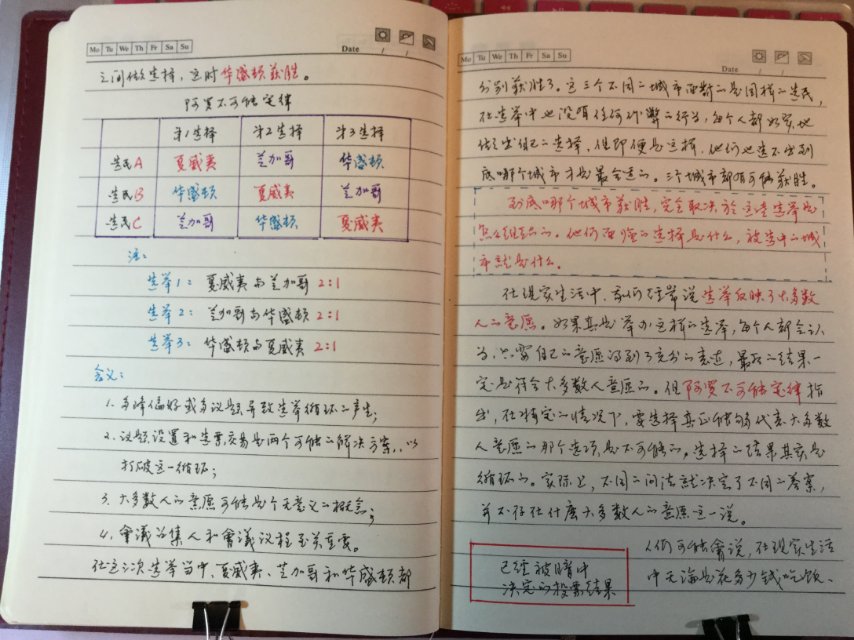 Mo Tu We Th Fr Sa Su
Date / /
之间做选择，这时华盛顿获胜。
阿罗不可能定律
第1选择 第2选择 第3选择
选民A 夏威夷 芝加哥 华盛顿
选民B 华盛顿 夏威夷 芝加哥
选民C 芝加哥 华盛顿 夏威夷
注：
选举1：夏威夷与芝加哥 2:1
选举2：芝加哥与华盛顿 2:1
选举3：华盛顿与夏威夷 2:1
含义：
1. 多峰偏好或多议题导致选举循环的产生；
2. 议题设置和选票交易是两个可能的解决方案，以
打破这一循环；
3. 大多数人的意愿可能是个无意义的概念；
4. 會議召集人和會議议程至关重要。
在这三次选举当中，夏威夷、芝加哥和华盛顿都
Mo Tu We Th Fr Sa Su
Date / /
分别获胜了。这三个不同的城市面对的是同样的选民，
在选举中也没有任何作弊的行为，每个人都如实地
做出自己的选择，但即便是这样，他们也选不出到
底哪个城市才是最合适的。三个城市都有可能获胜。
到底哪个城市获胜，完全取决於这些选举是
怎么组织的。他们面临的选择是什么，被选中的城
市就是什么。
在现实生活中，我们经常说选举反映了大多数
人的意愿。如果真是举办这样的选举，每个人都会认
为，只要自己的意愿得到了充分的表达，最后的结果一
定是符合大多数人意愿的。但阿罗不可能定律指
出，在特定的情况下，要选择真正能够代表大多数
人意愿的那个选项是不可能的。选择的结果其实是
循环的。实际上，不同的问法就决定了不同的答案，
并不存在什麼大多数人的意愿这一说。
已经被暗中
决定的投票结果
人们可能會说，在现实生活
中无论是花多少钱吃饭、